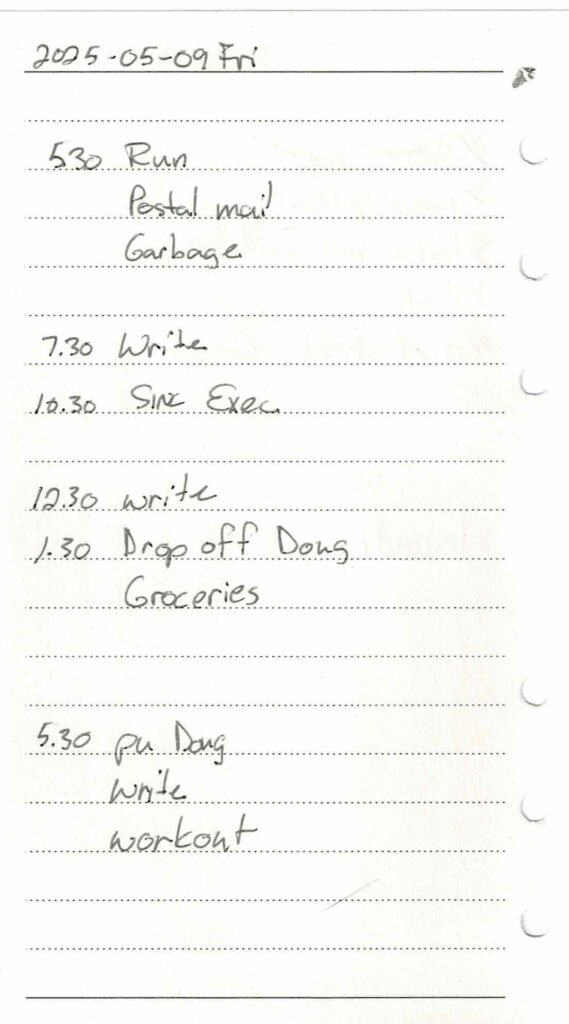 2025-05-09 Fri
530 Run
Postal mail
Garbage
7.30 Write
10.30 SINC Exec.
12.30 write
1.30 Drop off Doug
Groceries
5.30 pu Doug
write
workout